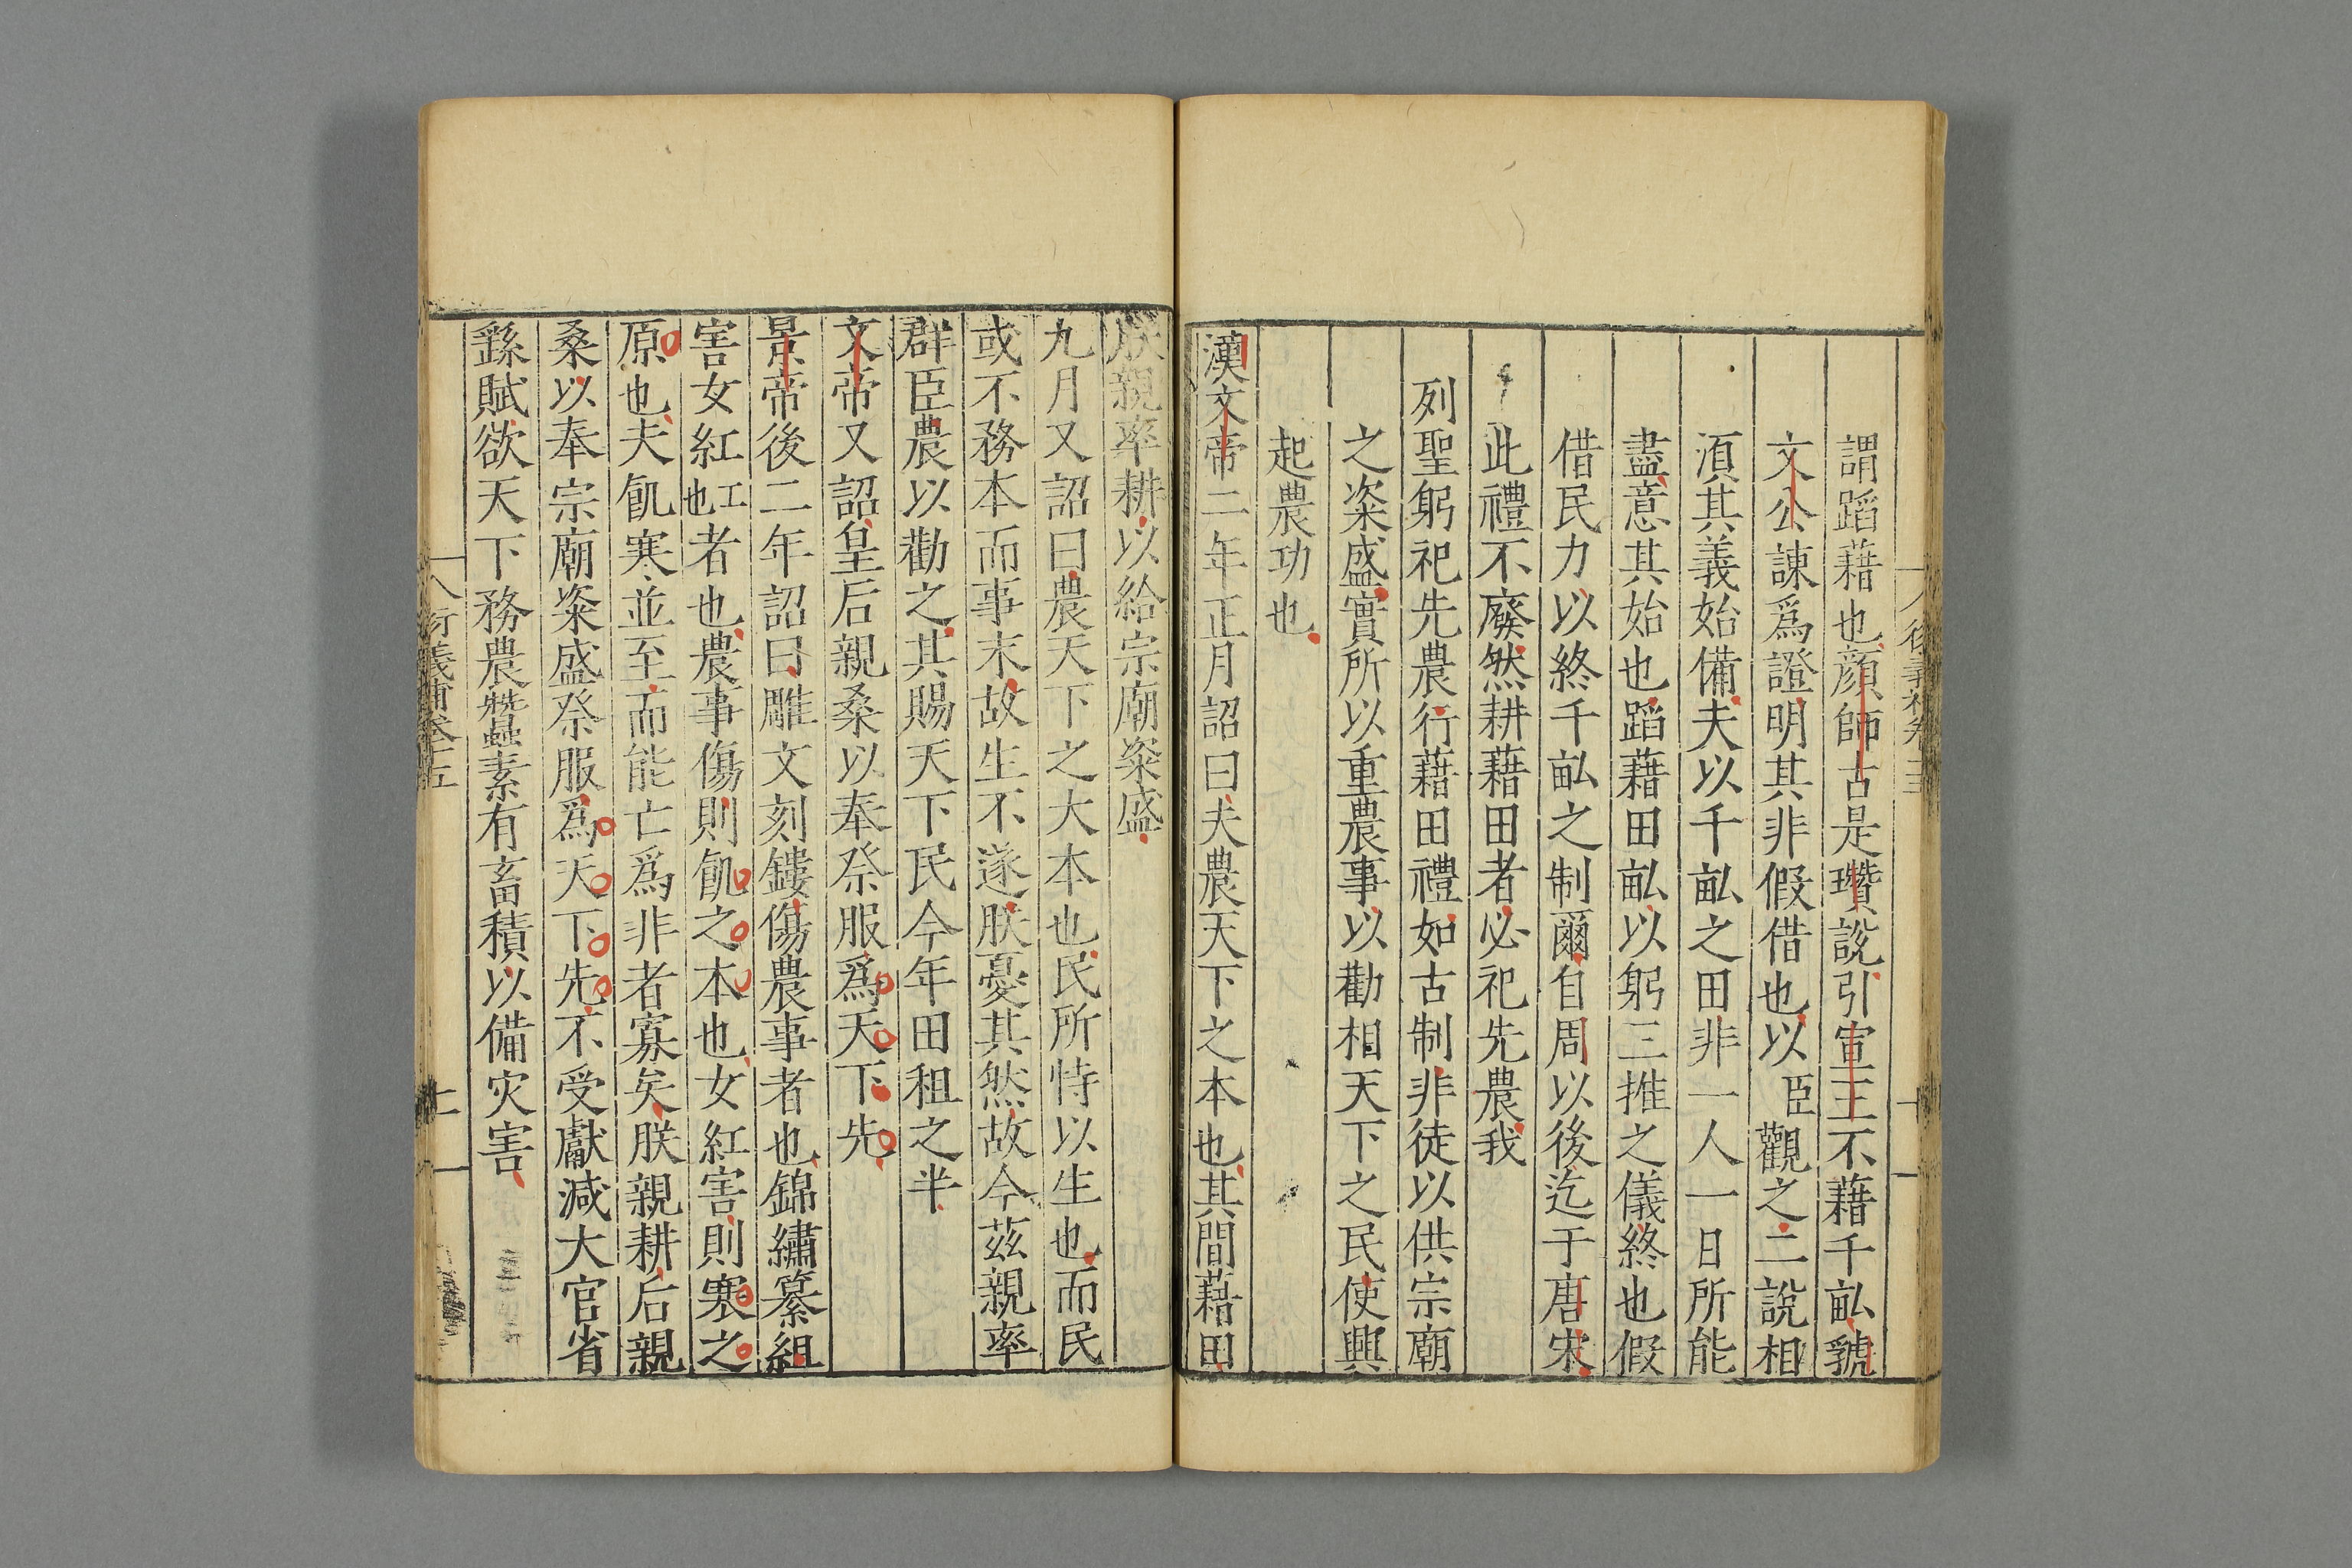 謂蹈藉也顔師古是瓚說引宣王不藉千畝虢
文公諫爲證明其非假借也以臣觀之二說相
湏其義始備夫以千畝之田非一人一日所能
盡意其始也蹈藉田畝以躬三推之儀終也假
借民力以終千畝之制爾自周以後迄于唐宋
此禮不廢然耕藉田者必祀先農我
列聖躬祀先農行藉田禮如古制非徒以供宗廟
之粢盛實所以重農事以勸相天下之民使興
起農功也
漢文帝二年正月詔曰夫農天下之本也其間藉田
朕親率耕以給宗廟粢盛
九月又詔曰農天下之大本也民所恃以生也而民
或不務本而事末故生不遂朕憂其然故今茲親率
群臣農以勸之其賜天下民今年田租之半
文帝又詔皇后親桑以奉祭服爲天下先
景帝後二年詔曰雕文刻鏤傷農事者也錦繡纂組
害女紅工也者也農事傷則飢之本也女紅害則寒之
原也夫飢寒並至而能亡爲非者寡矣朕親耕后親
桑以奉宗廟粢盛祭服爲天下先不受獻減大官省
繇賦欲天下務農蠶素有畜積以備灾害